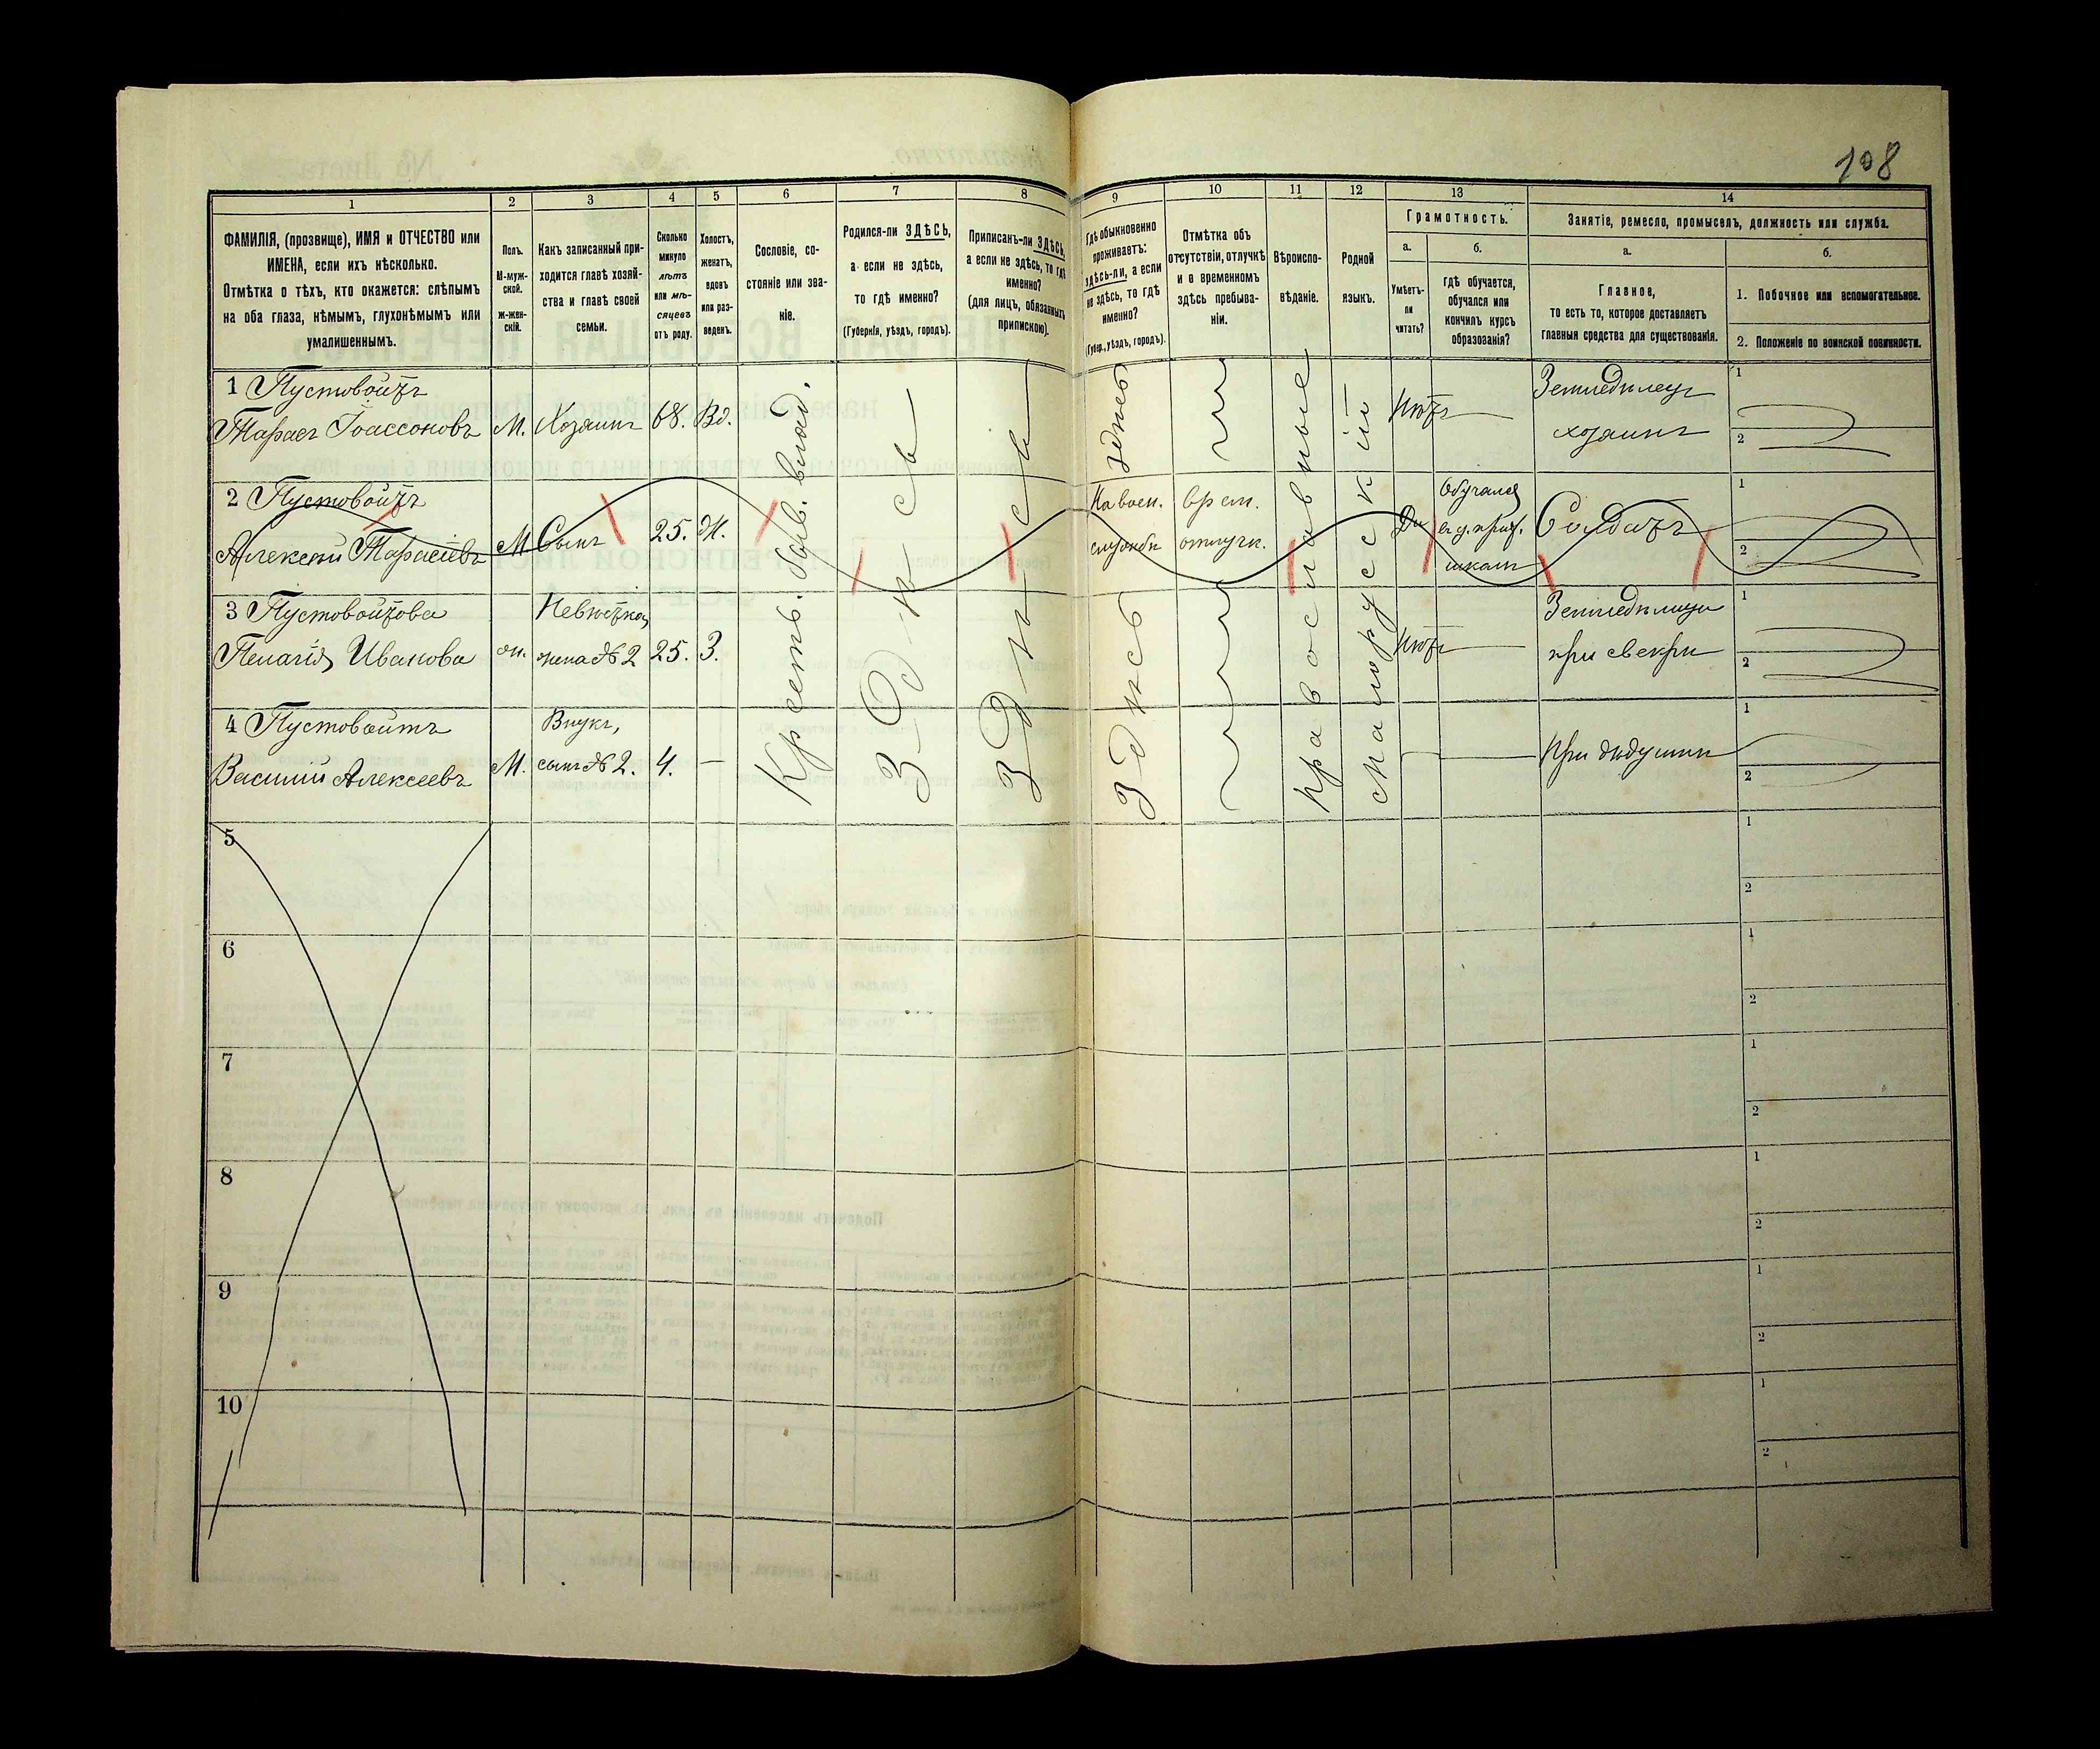 108
1
2
3
4
5
6
7
8
9
10
11
12
13
14
ФАМИЛІЯ, (прозвище), ИМЯ и ОТЧЕСТВО или
ИМЕНА, если ихъ нѣсколько.
Отмѣтка о тѣхъ, кто окажется: слѣпымъ
на оба глаза, нѣмымъ, глухонѣмымъ или
умалишеннымъ.
Полъ.
М-муж-
ской.
ж-жен-
скій.
Какъ записанный при-
ходится главѣ хозяй-
ства и главѣ своей
семьи.
Сколько
минуло
лѣтъ
или мѣ-
сяцевъ
отъ роду.
Холостъ,
женатъ,
вдовъ
или раз-
веденъ.
Сословіе, со-
стояніе или зва-
ніе.
Родился-ли ЗДѢСЬ,
а если не здѣсь,
то гдѣ именно?
(Губернія, уѣздъ, городъ).
Приписанъ-ли ЗДѢСЬ,
а если не здѣсь, то гдѣ
именно?
(для лицъ, обязанныхъ
припискою).
Гдѣ обыкновенно
проживаетъ:
здѣсь-ли, а если
не здѣсь, то гдѣ
именно?
(Губер., уѣздъ, городъ).
Отмѣтка объ
отсутствіи, отлучкѣ
и о временномъ
здѣсь пребыва-
ніи.
Вѣроиспо-
вѣданіе.
Родной
языкъ.
Грамотность.
а.
б.
Умѣетъ-
ли
читать?
гдѣ обучается,
обучался или
кончилъ курсъ
образованія?
Занятіе, ремесло, промыселъ, должность или служба.
а.
б.
Главное,
то есть то, которое доставляетъ
главныя средства для существованія.
1. Побочное или вспомогательное.
2. Положеніе по воинской повинности.
1 Пустовойтъ
Тарасъ Іоассоновъ
М.
Хозяинъ
68.
Вд.
Здѣсь
Нѣтъ
Земледѣлецъ
хозяинъ
1
2
2 Пустовойтъ
Алексѣй Тарасіевъ
М
Сынъ
25.
Ж.
На воен.
службѣ
врем.
отлучк.
Да
Обучался
школѣ
Солдатъ
1
2
3 Пустовойтова
Пелагія Иванова
ж.
Невѣстка,
жена № 2
25.
З.
Нѣтъ
Земледѣлица
при свекрѣ
1
2
4 Пустовойтъ
Василій Алексѣевъ
М.
Внукъ,
сынъ № 2.
4.
—
При дѣдушкѣ
1
2
Крестъ. бывш. влад.
Здѣсь
Здѣсь
Здѣсь
Православные
Малорусскій
5
1
2
6
1
2
7
1
2
8
1
2
9
1
2
10
1
2